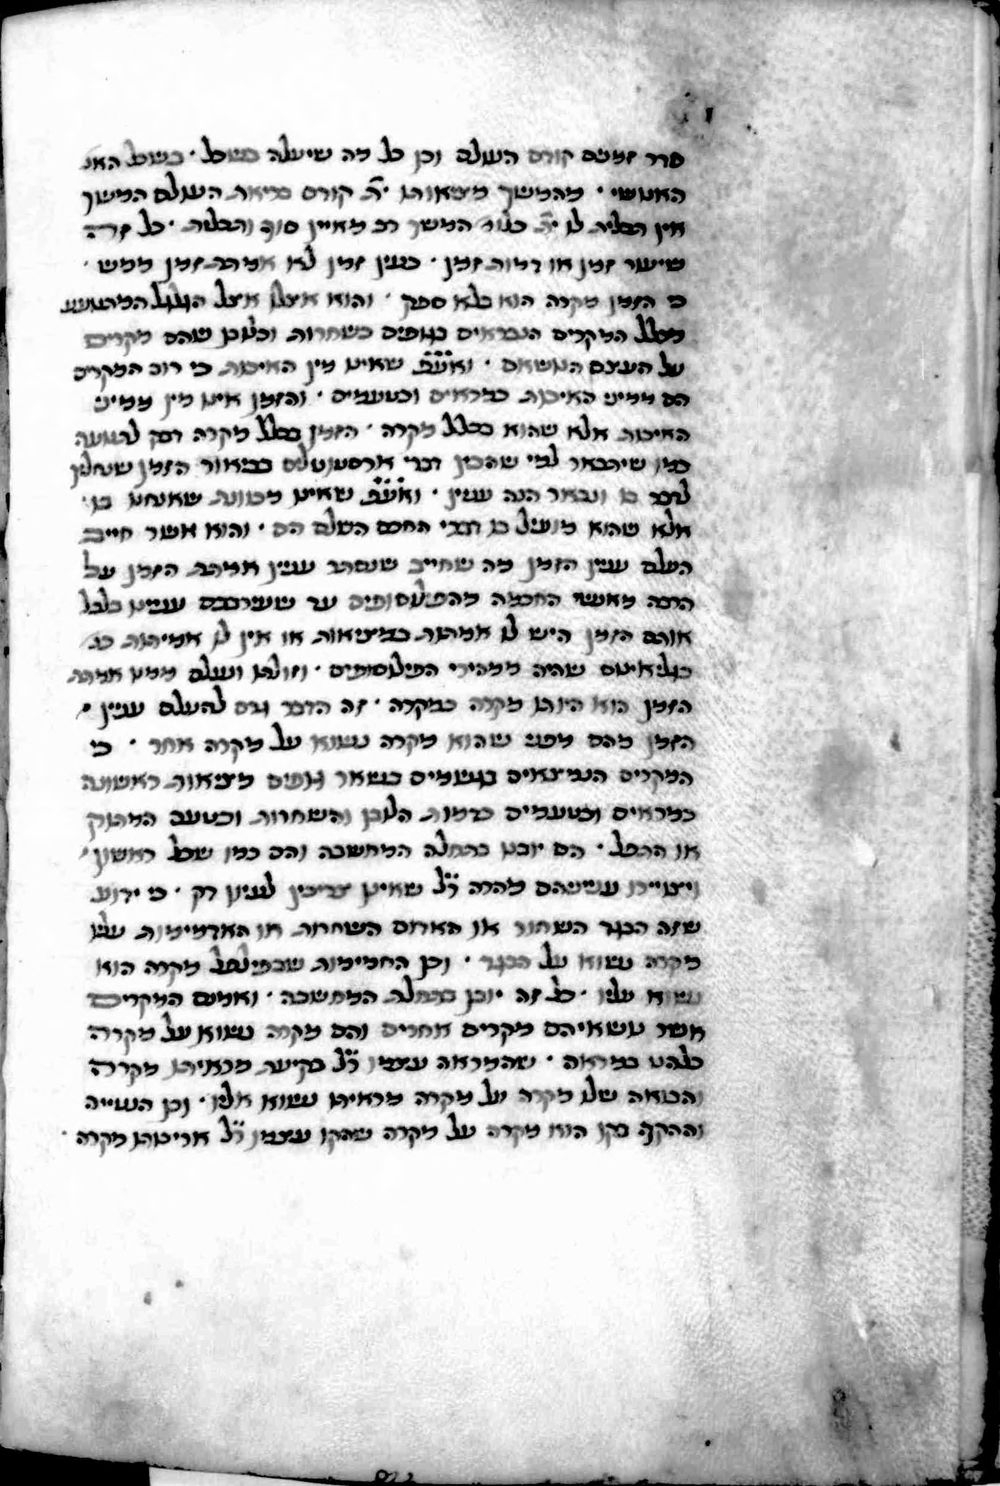 סדר זמנים קודם העולם וכן כל מה שיעלה בשכל · בשכל האנ
האנושי · מהמשך מציאותו ית׳ קודם בריאת העולם המשך
אין תכלית לו ית׳ כלומ׳ המשך רב מאיין סוף ותכלית · כל זה
שיעור זמן או דמות זמן · כעניין זמן לא אמתת זמן ממש ·
כי הזמן מקרה הוא בלא ספק · והוא אצלנו אצל הגלגל המתנועע
מכלל המקרים הנבראים בגופים כשחרות וכלובן שהם מקרים
על העצם הנושאם · ואע״פ שאינו מין האיכות כי רוב המקרים
הם ממיני האיכות כמראים וכטעמים · והזמן אינו מין ממיני
האיכות אלא שהוא בכלל מקרה · הזמן בכלל מקרה דבק לתנועה
כמו שיתבאר למי שהבין דברי ארסטוטלוס בביאור הזמן שנחלץ
לדבר בו ונבאר הנה עניין · ואע״פ שאינו מכוונת שאנחנו בו ·
אלא שהוא מועיל בו דברי החכם השלם הם · והוא אשר חייב
העלם עניין הזמן מה שחייב שנסתר עניין אמתת הזמן על
הרבה מאנשי החכמה מהפילוסופים עד שערבבם עניינו בלבל
אותם הזמן היש לו אמתות במציאות או אין לו אמיתות כג׳
כגליאנוס שהיה ממהירי הפילוסופים · וזולתו ונעלם ממנו אמתת
הזמן הוא היותו מקרה במקרה · זה הדבר גרם להעלם עניין
הזמן מהם מפני שהוא מקרה נשוא על מקרה אחר · כי
המקרים הנמצאים בגשמים כשאר גופים מציאות ראשונה
כמראים וכטעמים כדמות הלובן והשחרות וכטעם המתוק
או התפל · הם יובנו בתחלת המחשבה והם כמו שכל ראשון
ויצויירו ענייניהם מהרה ר״ל שאינו צריכין לעיון רק · כי ידוע
שזה הבגד השחור או האדום השחרות או האדמימות עליו
מקרה נשוא על הבגד · וכן החמימות שבפילפל מקרה הוא
נשוא עליו · כל זה יובן בתחלת המחשבה · ואמנם המקרים
אשר נושאיהם מקרים אחרים והם מקרה נשוא על מקרה
כלהט במראה · שהמראה עצמו ר״ל בקיעת מראיתו מקרה
והבואה שלו מקרה על מקרה מראיתו נשוא אליו · וכן הנטייה
וההקף בקו הוא מקרה על מקרה שהקו עצמו ר״ל אריכותו מקרה ·